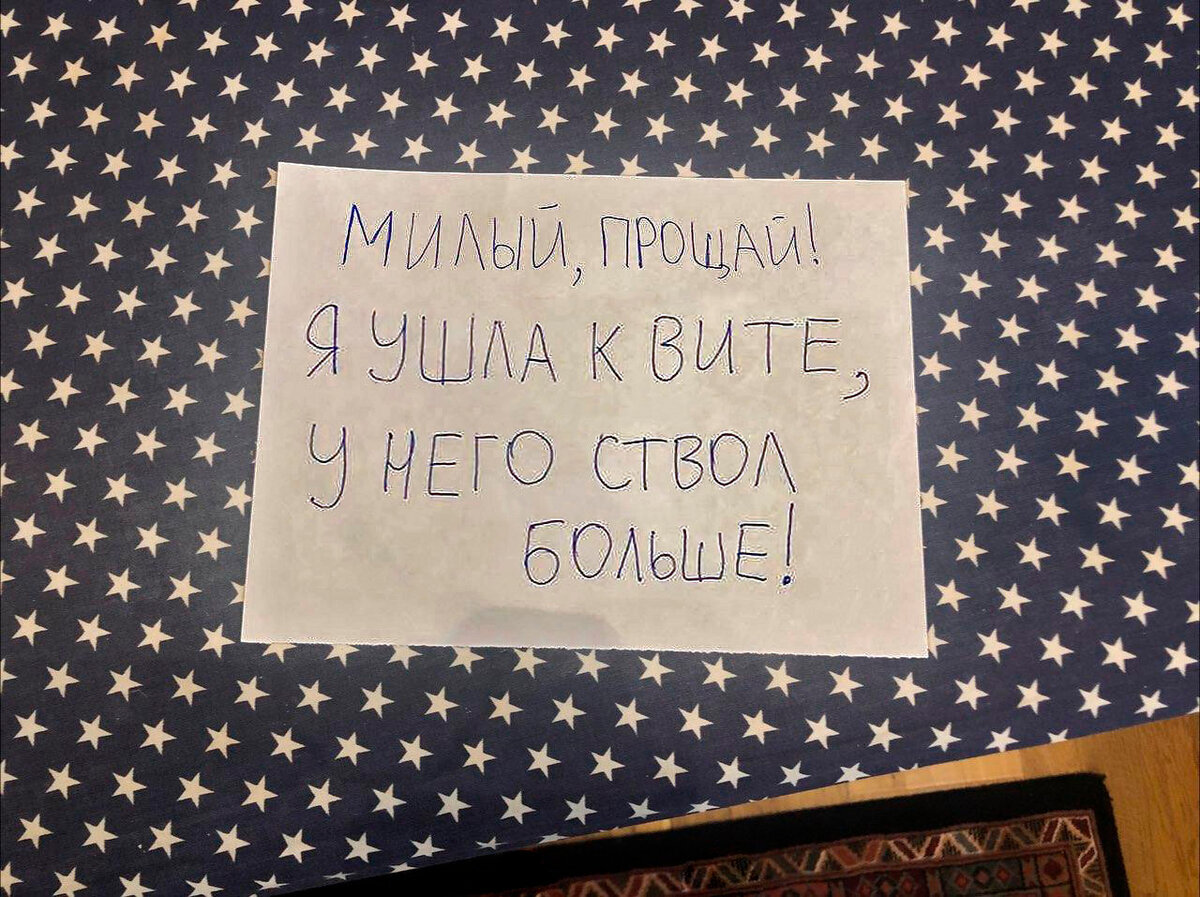 МИЛЫЙ, ПРОЩАЙ!
Я УШЛА К ВИТЕ,
У НЕГО СТВОЛ
БОЛЬШЕ!